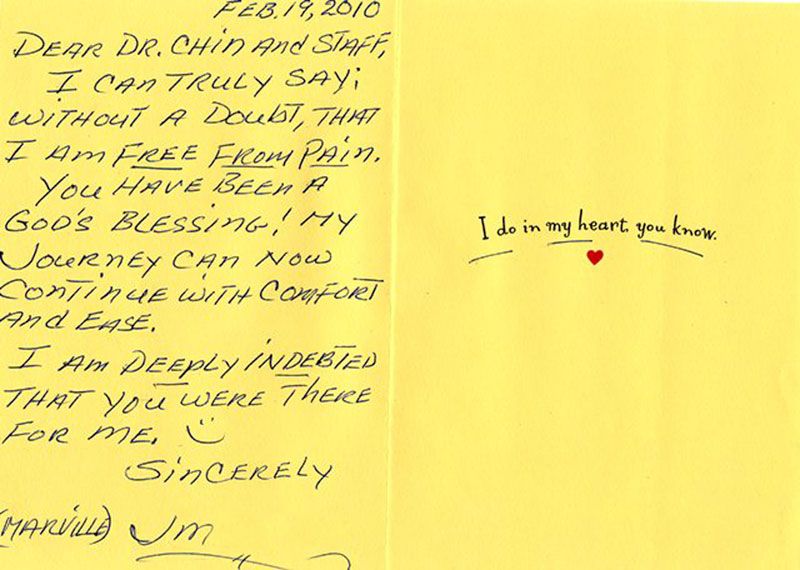 FEB. 19, 2010
DEAR DR. CHIN AND STAFF,
I CAN TRULY SAY;
WITHOUT A DOUBT, THAT
I AM FREE FROM PAIN.
YOU HAVE BEEN A
GOD'S BLESSING! MY
JOURNEY CAN NOW
CONTINUE WITH COMFORT
AND EASE.
I AM DEEPLY INDEBTED
THAT YOU WERE THERE
FOR ME.
SINCERELY
(MARVILLE) JM
I do in my heart, you know.